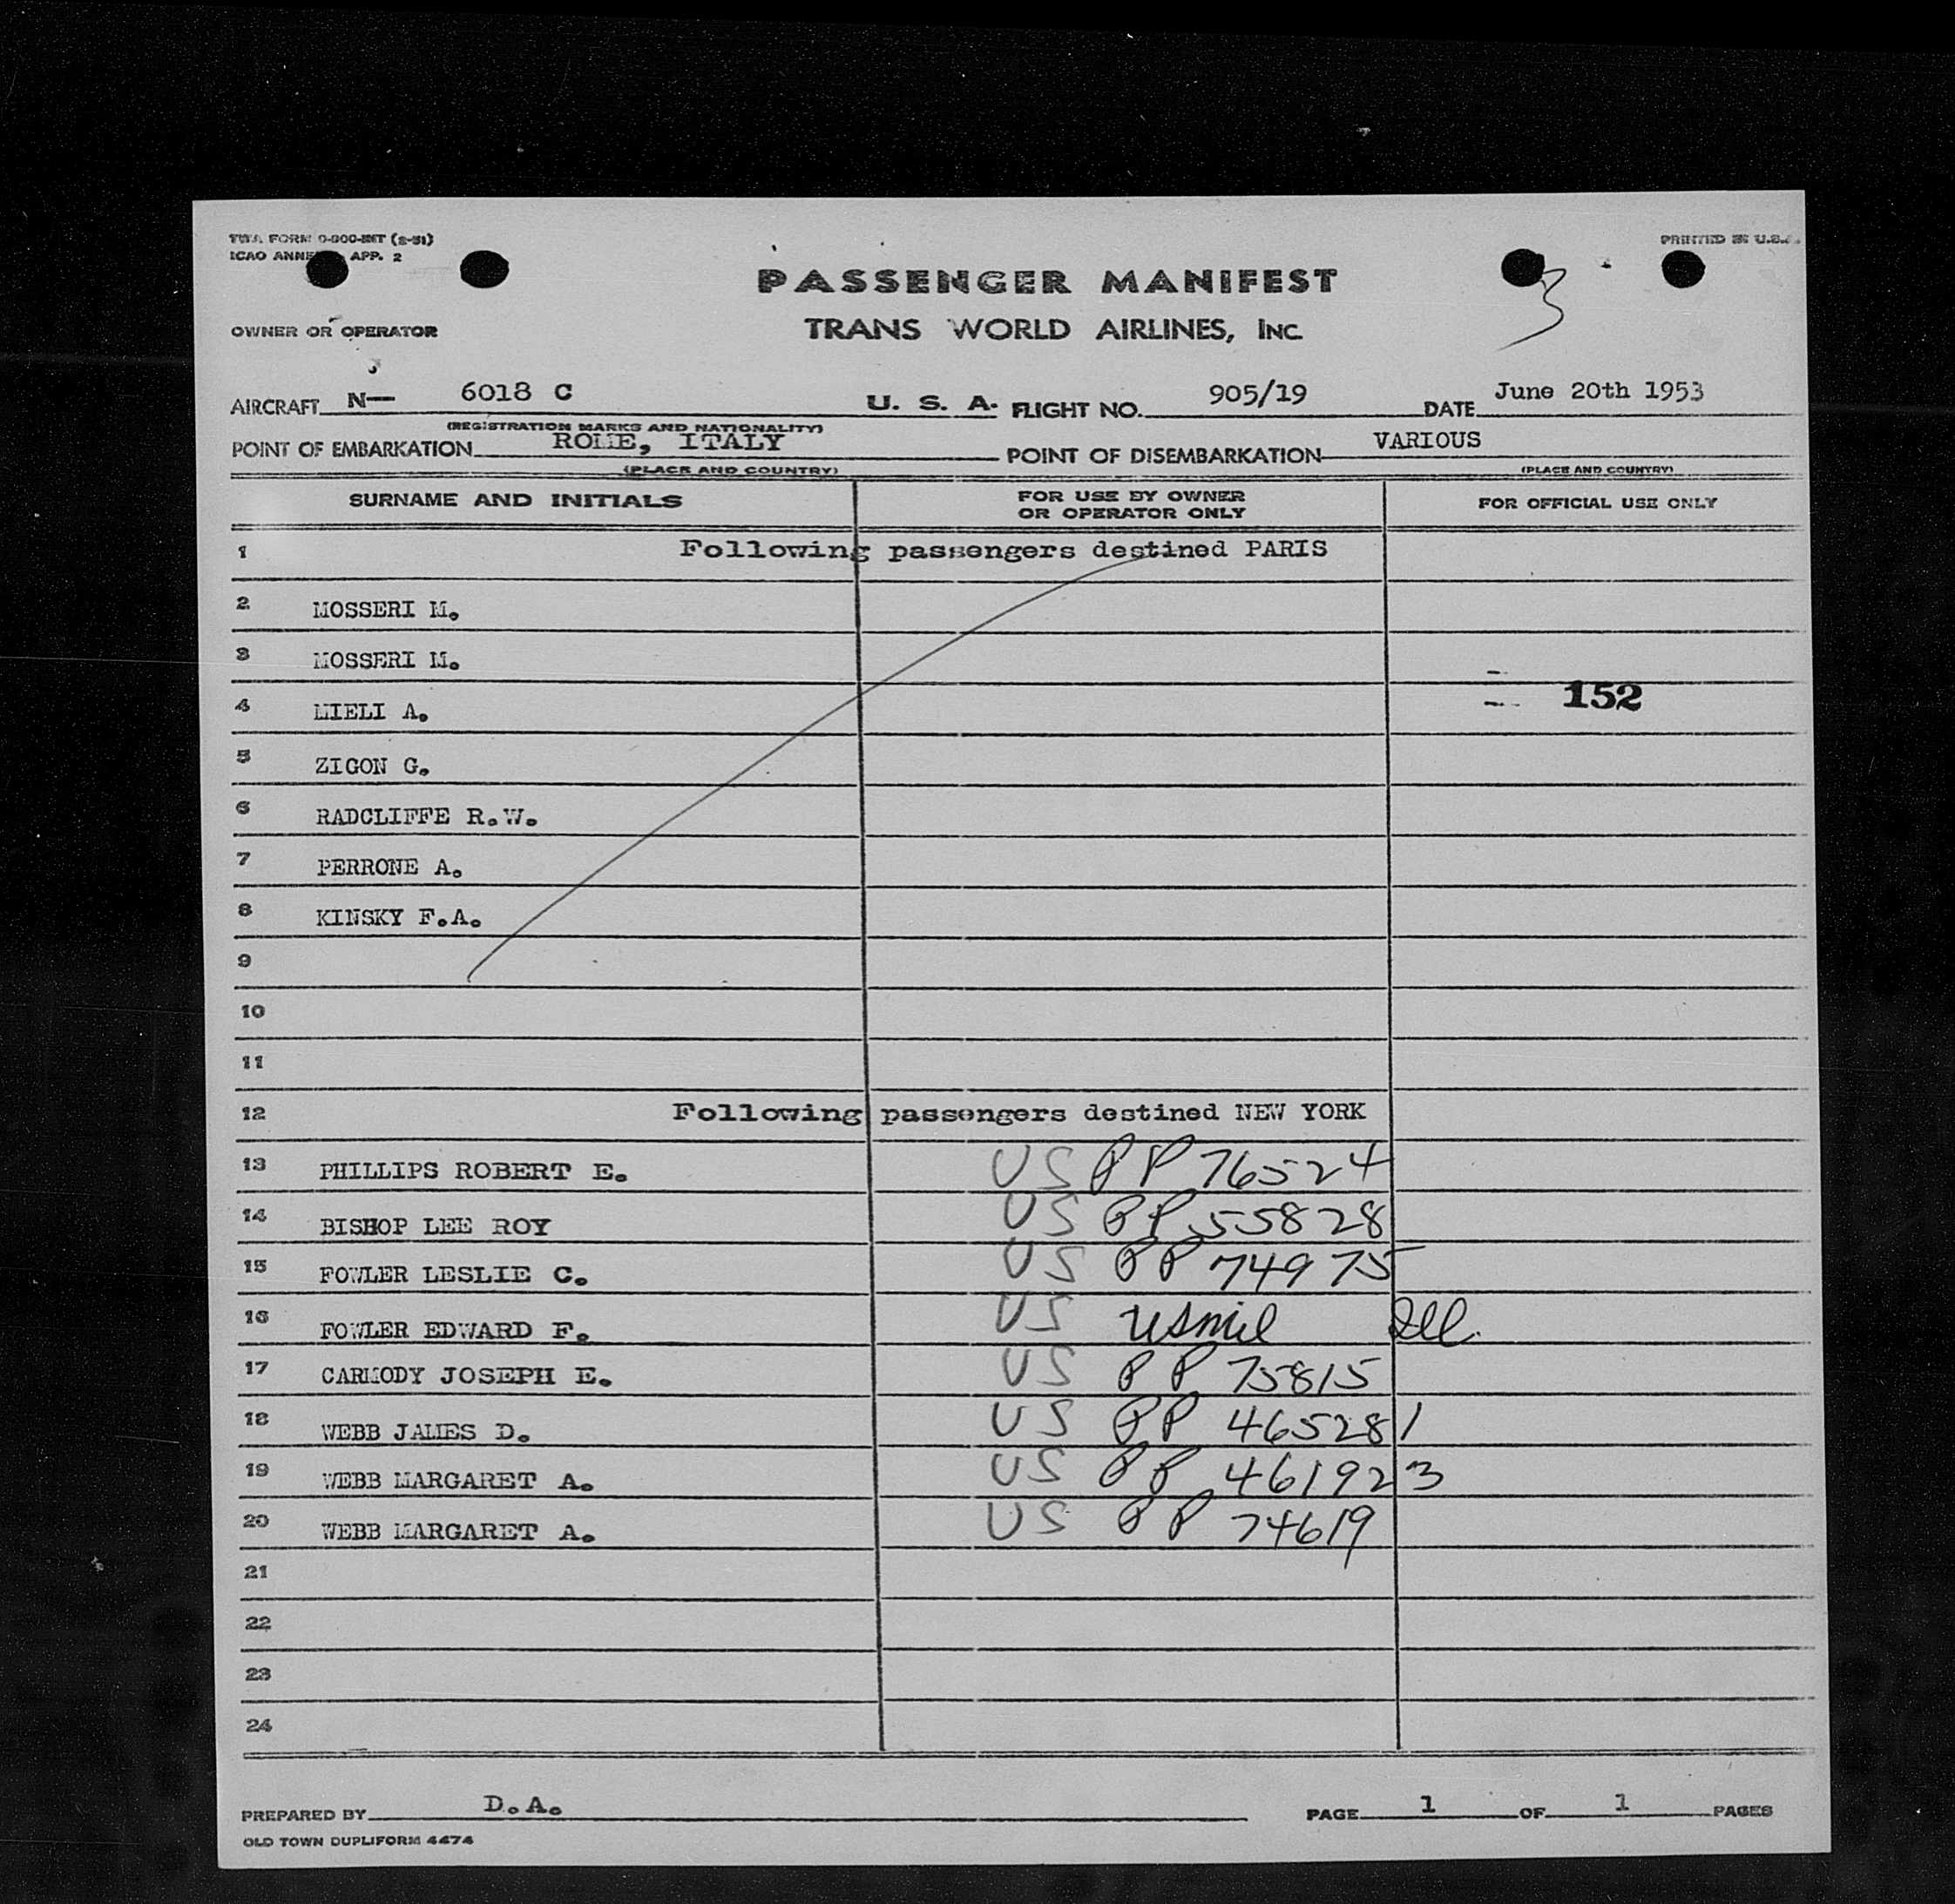 TWA FORM 0-900-INT (2-51)
ICAO ANNEX APP. 2
PRINTED IN U.S.A.
PASSENGER MANIFEST
3
OWNER OR OPERATOR
TRANS WORLD AIRLINES, INC.
AIRCRAFT N— 6018 C U. S. A. FLIGHT NO. 905/19 DATE June 20th 1953
(REGISTRATION MARKS AND NATIONALITY)
POINT OF EMBARKATION ROME, ITALY POINT OF DISEMBARKATION VARIOUS
(PLACE AND COUNTRY) (PLACE AND COUNTRY)
SURNAME AND INITIALS FOR USE BY OWNER OR OPERATOR ONLY FOR OFFICIAL USE ONLY
1 Following passengers destined PARIS
2 MOSSERI M.
3 MOSSERI M.
4 MIELI A. 152
5 ZIGON G.
6 RADCLIFFE R.W.
7 PERRONE A.
8 KINSKY F.A.
9
10
11
12 Following passengers destined NEW YORK
13 PHILLIPS ROBERT E. US PP 76524
14 BISHOP LEE ROY US PP 55828
15 FOWLER LESLIE C. US PP 74975
16 FOWLER EDWARD F. US usmil
17 CARMODY JOSEPH E. US PP 75815
18 WEBB JAMES D. US PP 465281
19 WEBB MARGARET A. US PP 461923
20 WEBB MARGARET A. US PP 74619
21
22
23
24
PREPARED BY D.A. PAGE 1 OF 1 PAGES
OLD TOWN DUPLIFORM 4474